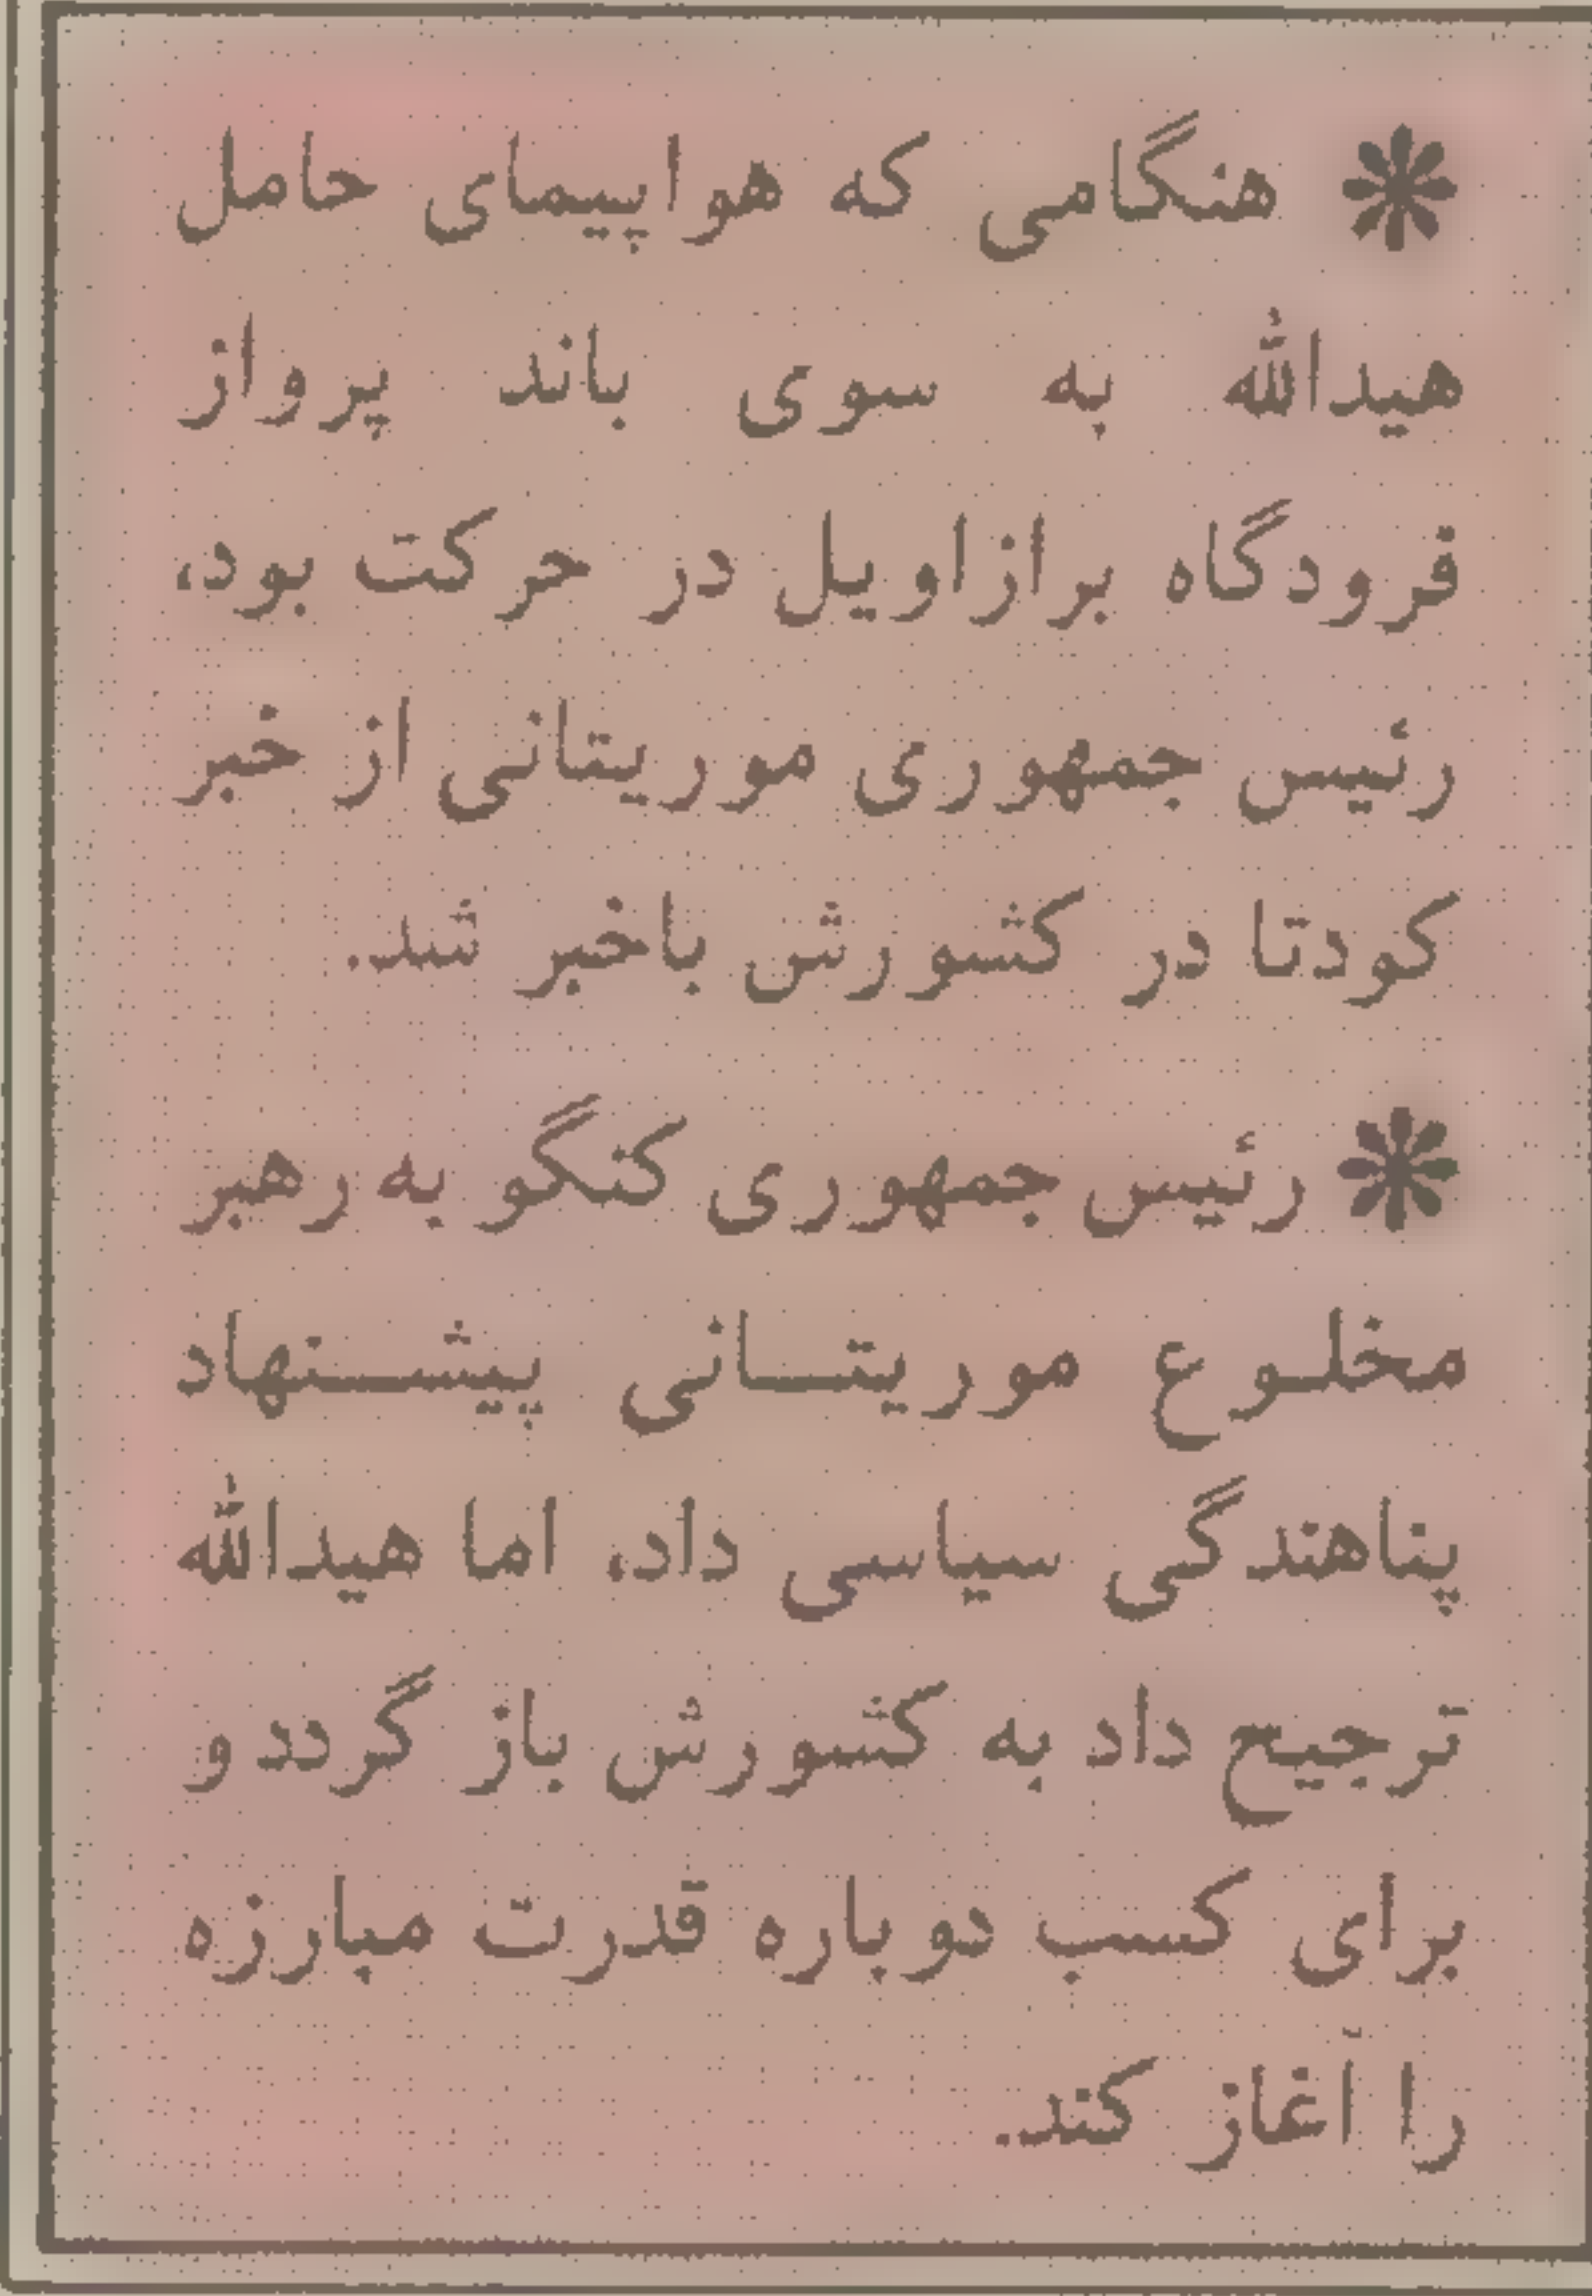 ❋ هنگامی که هواپیمای حامل
هیدالله به سوی باند پرواز
فرودگاه برازاویل در حرکت بود،
رئیس جمهوری موریتانی از خبر
کودتا در کشورش باخبر شد.
❋ رئیس جمهوری کنگو به رهبر
مخلوع موریتانی پیشنهاد
پناهندگی سیاسی داد، اما هیدالله
ترجیح داد به کشورش باز گردد و
برای کسب دوباره قدرت مبارزه
را آغاز کند.